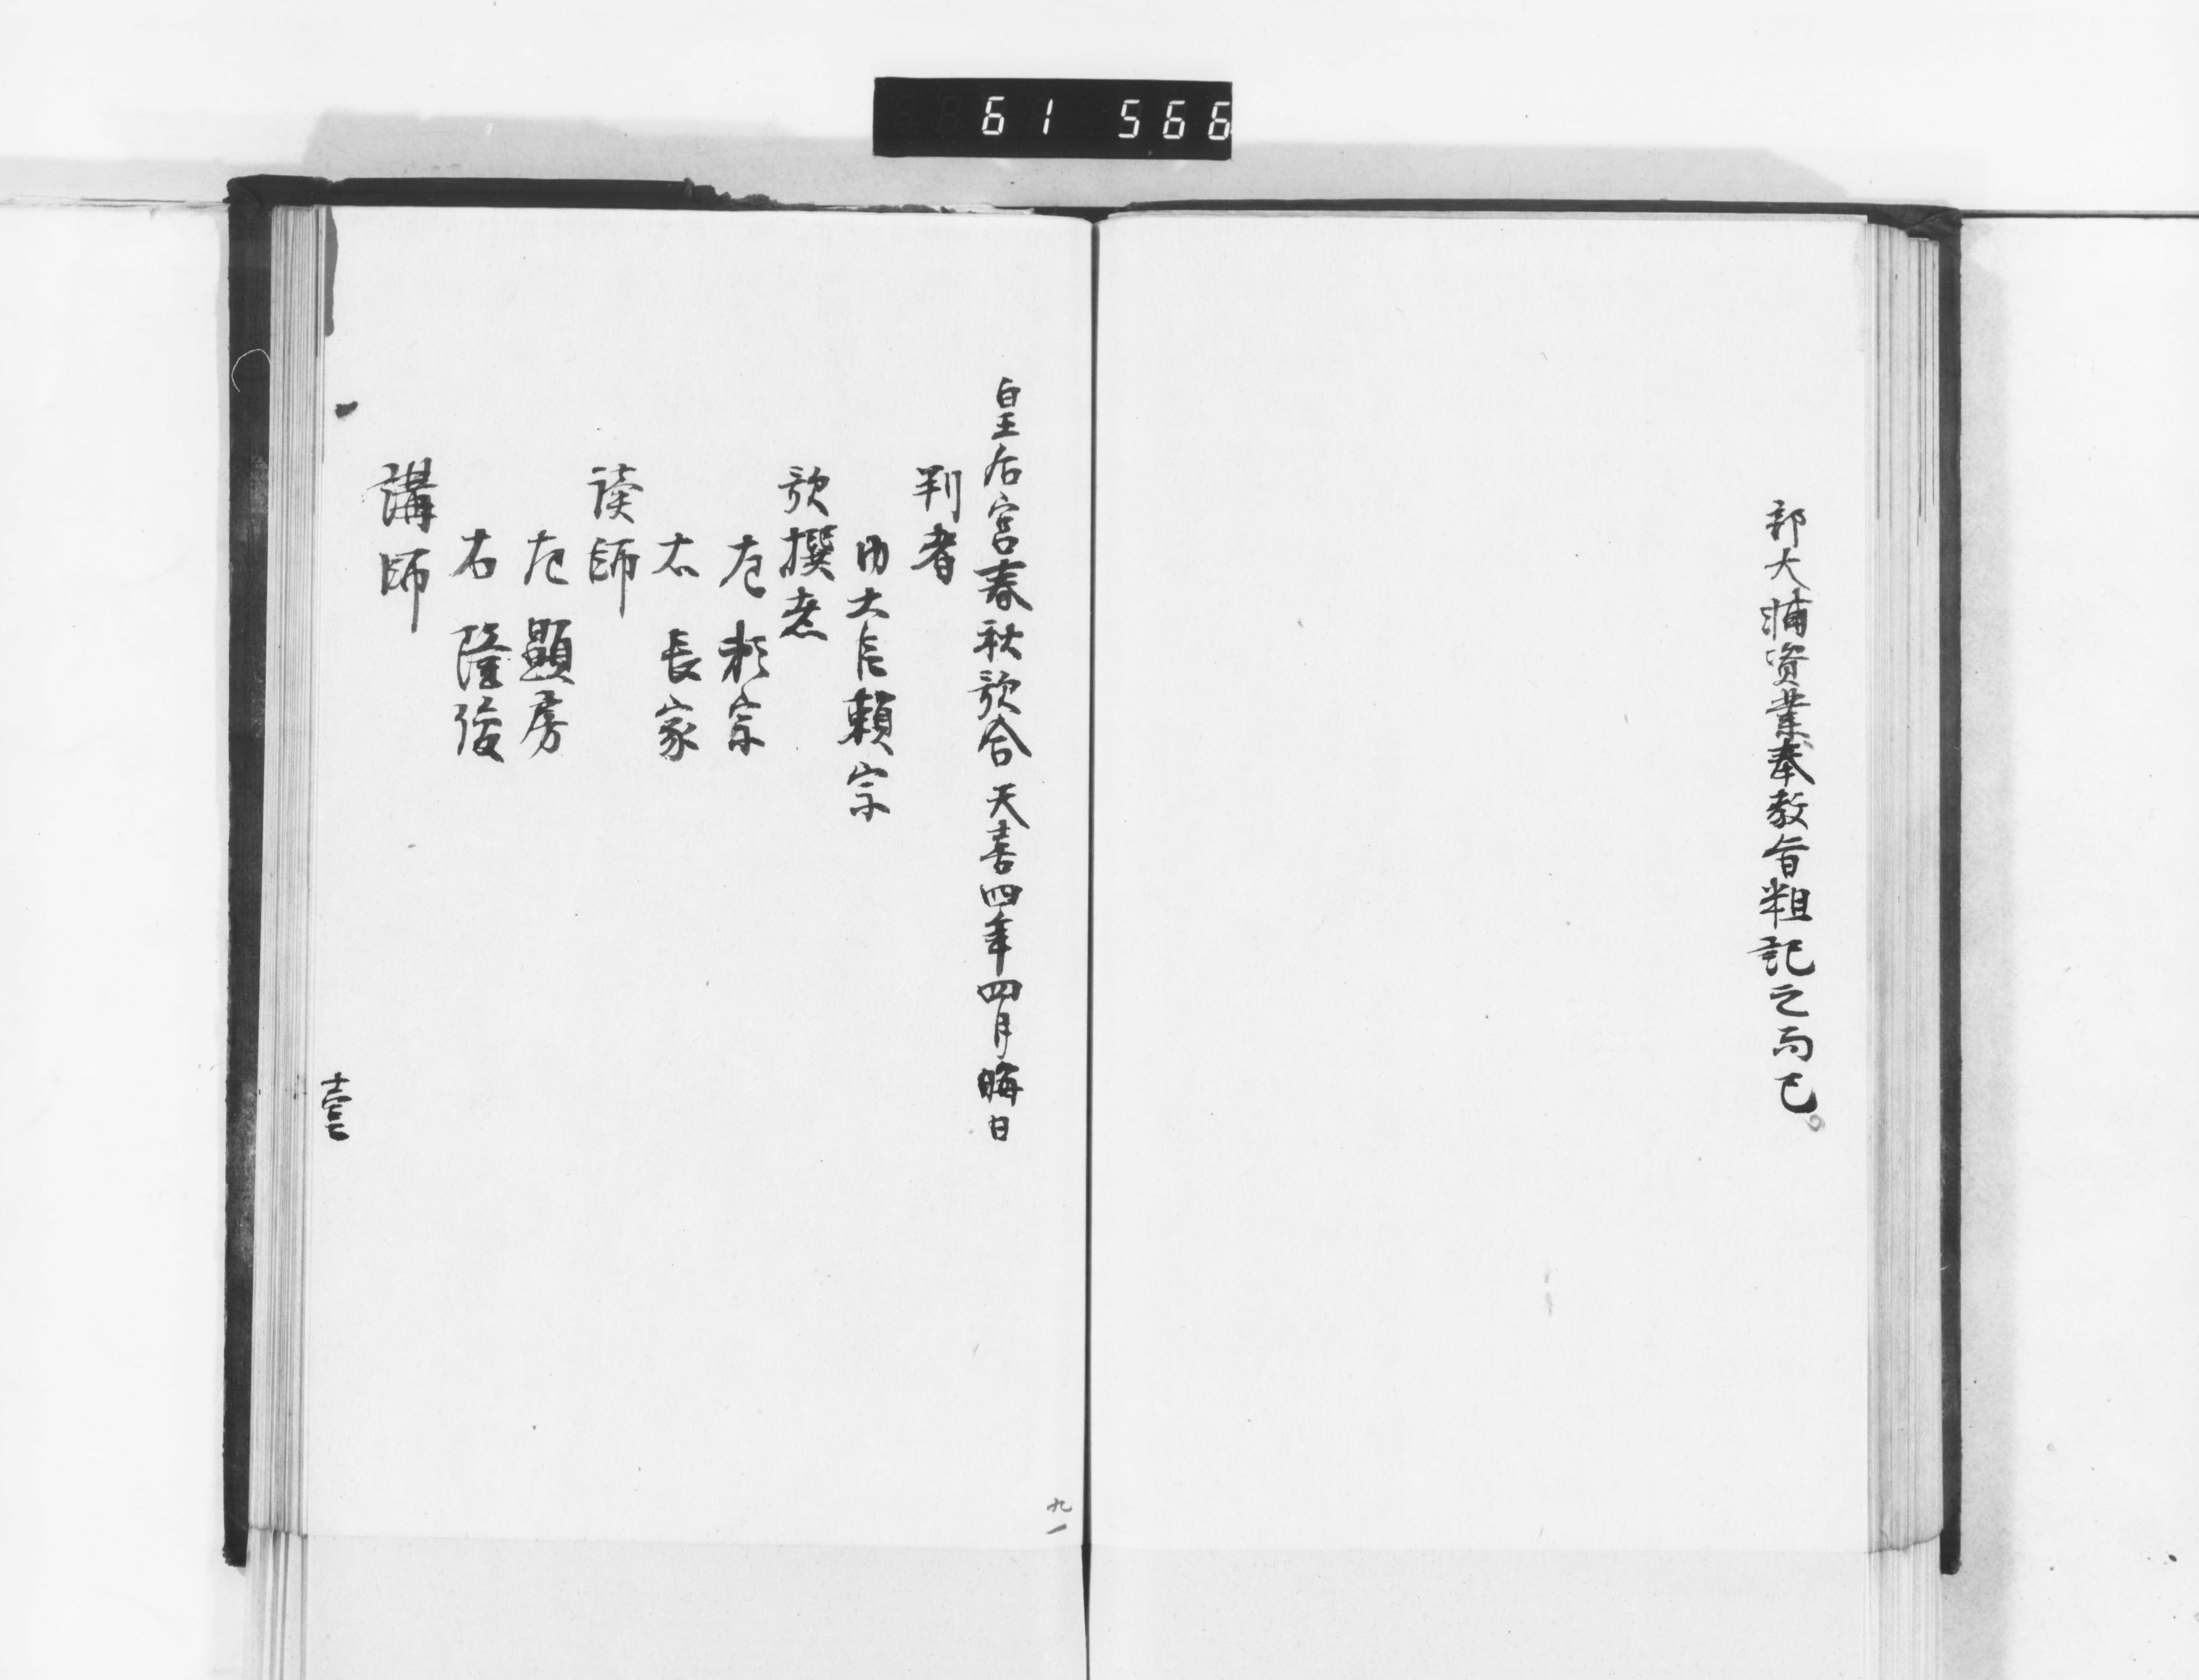 61 566
部大輔資業奉教旨粗記之而已。
皇后宮春秋歌合 天喜四年四月晦日
判者
内大臣頼宗
歌撰者
左 頼宗
右 長家
読師
左 顕房
右 隆俊
講師
九一